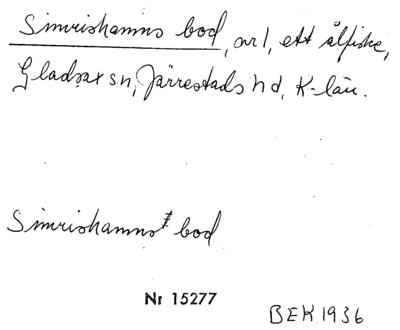 Simrishamns bod, ar 1, ett ålfiske,
Gladsax sn, Järrestads hd, K-län.
Simrishamns bod
Nr 15277
BEK 1936